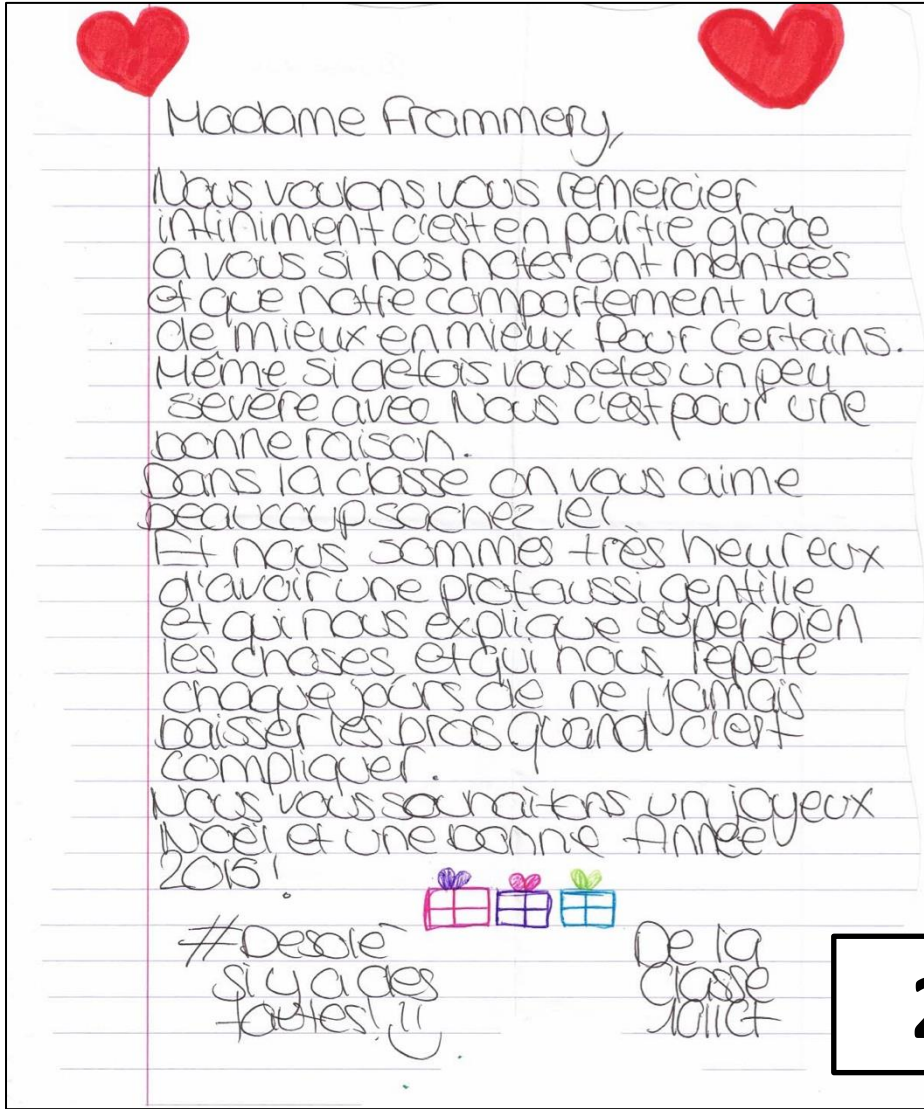 Madame Frammery,
Nous voulons vous remercier
infiniment c'est en partie grâce
a vous si nos notes ont montées
et que notre comportement va
de mieux en mieux Pour Certains.
Même si defois vous etes un peu
sevère avec Nous c'est pour une
bonne raison.
Dans la classe on vous aime
beaucoup sachez le!
Et nous sommes très heureux
d'avoir une prof aussi gentille
et qui nous explique super bien
les choses et qui nous repète
chaque jours de ne jamais
baisser les bras quand c'est
compliquer.
Nous vous souhaitons un joyeux
Noël et une bonne Année
2015!
#Desolé
si y a des
fautes!
De la
Classe
2